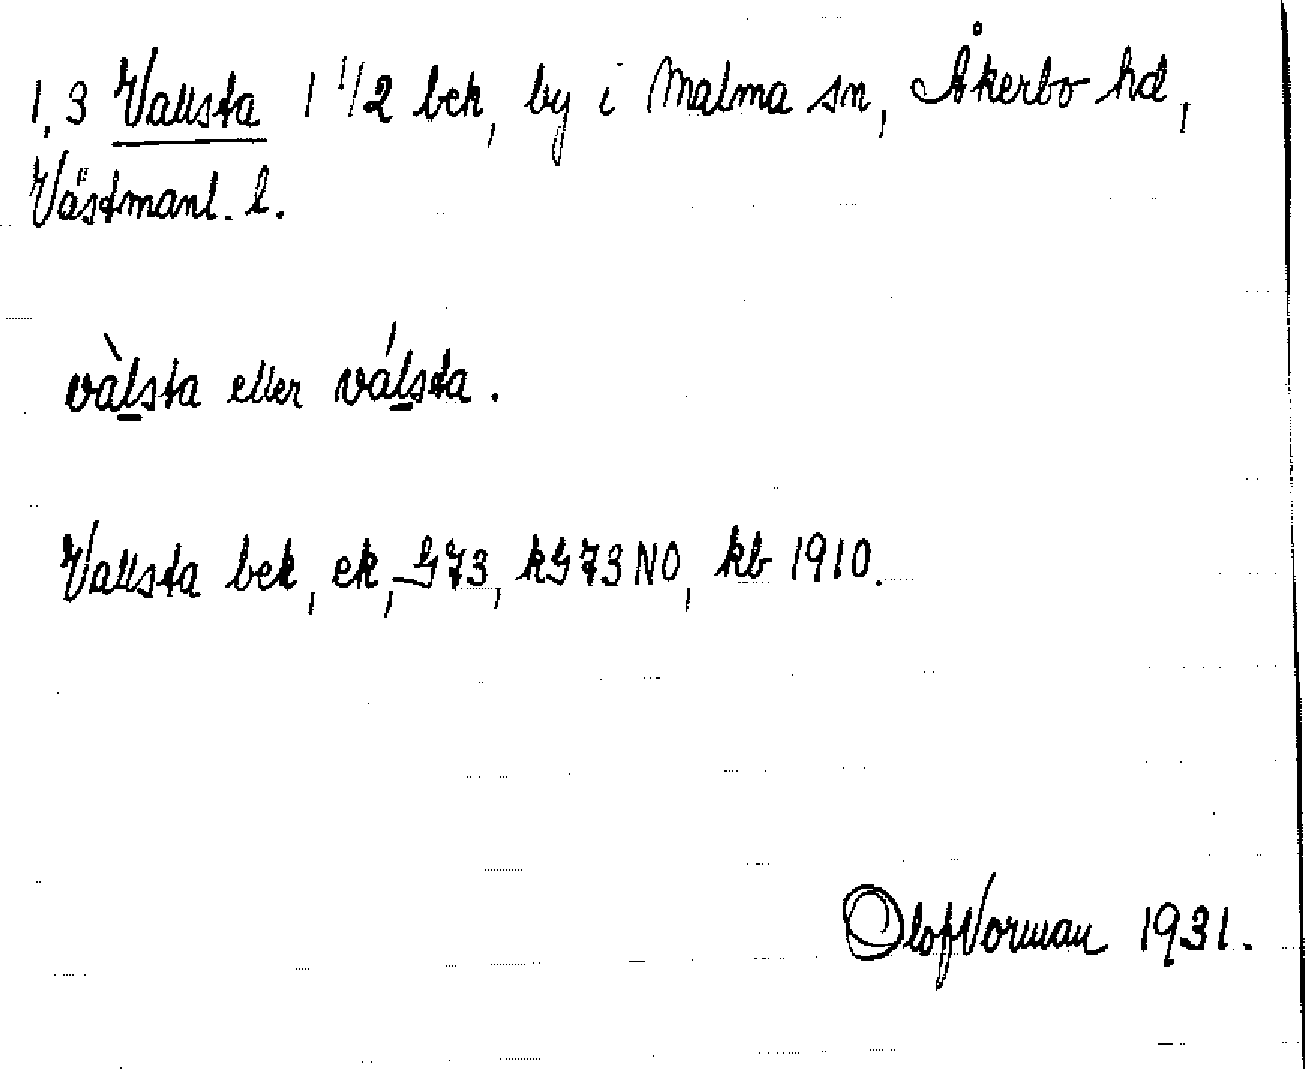 1,3 Vallsta 1 1/2 bek, by i Malma sn, Åkerbo hd,
Västmanl. l.
vàlsta ellerválsta.
Vallsta bek, ek, G73, kG73NO, kb 1910.
Olof Vorman 1931.